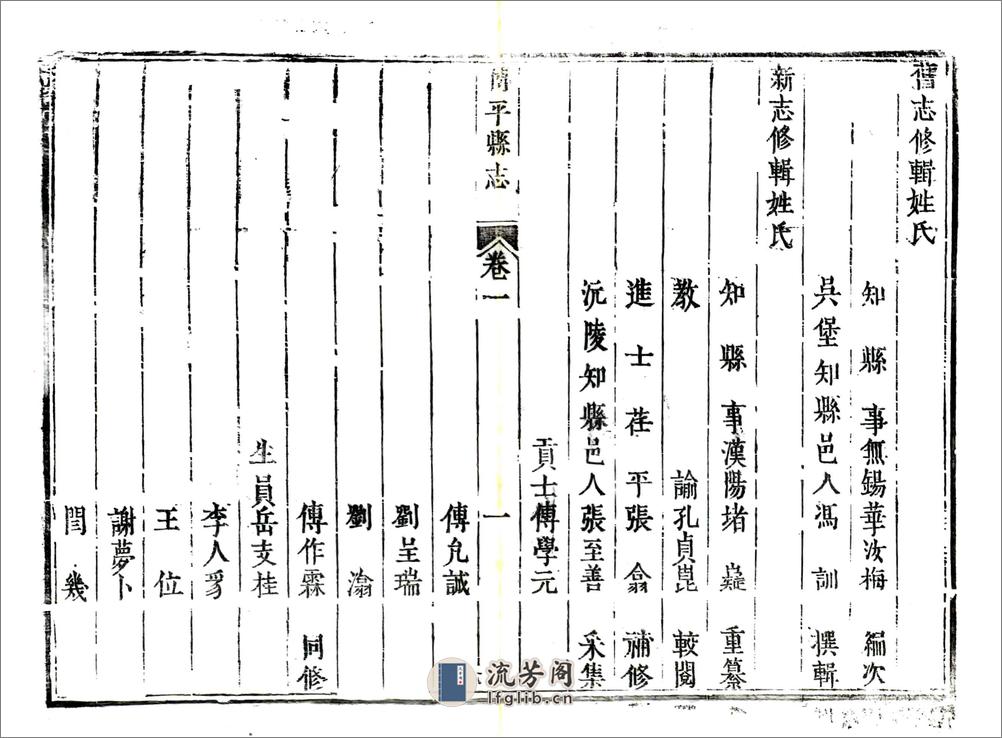 舊志修輯姓氏
知縣事無錫華汝梅 編次
吳堡知縣邑人馮訓 撰輯
新志修輯姓氏
知縣事漢陽堵嶷 重纂
教諭孔貞崑 較閱
進士茌平張翕 補修
沅陵知縣邑人張至善 采集
貢士傅學元
平縣志 卷一 一
傅允誠
劉呈瑞
劉滃
傅作霖 同修
生員岳支桂
李人豸
王位
謝夢卜
閆幾
流芳阁
lfglib.cn